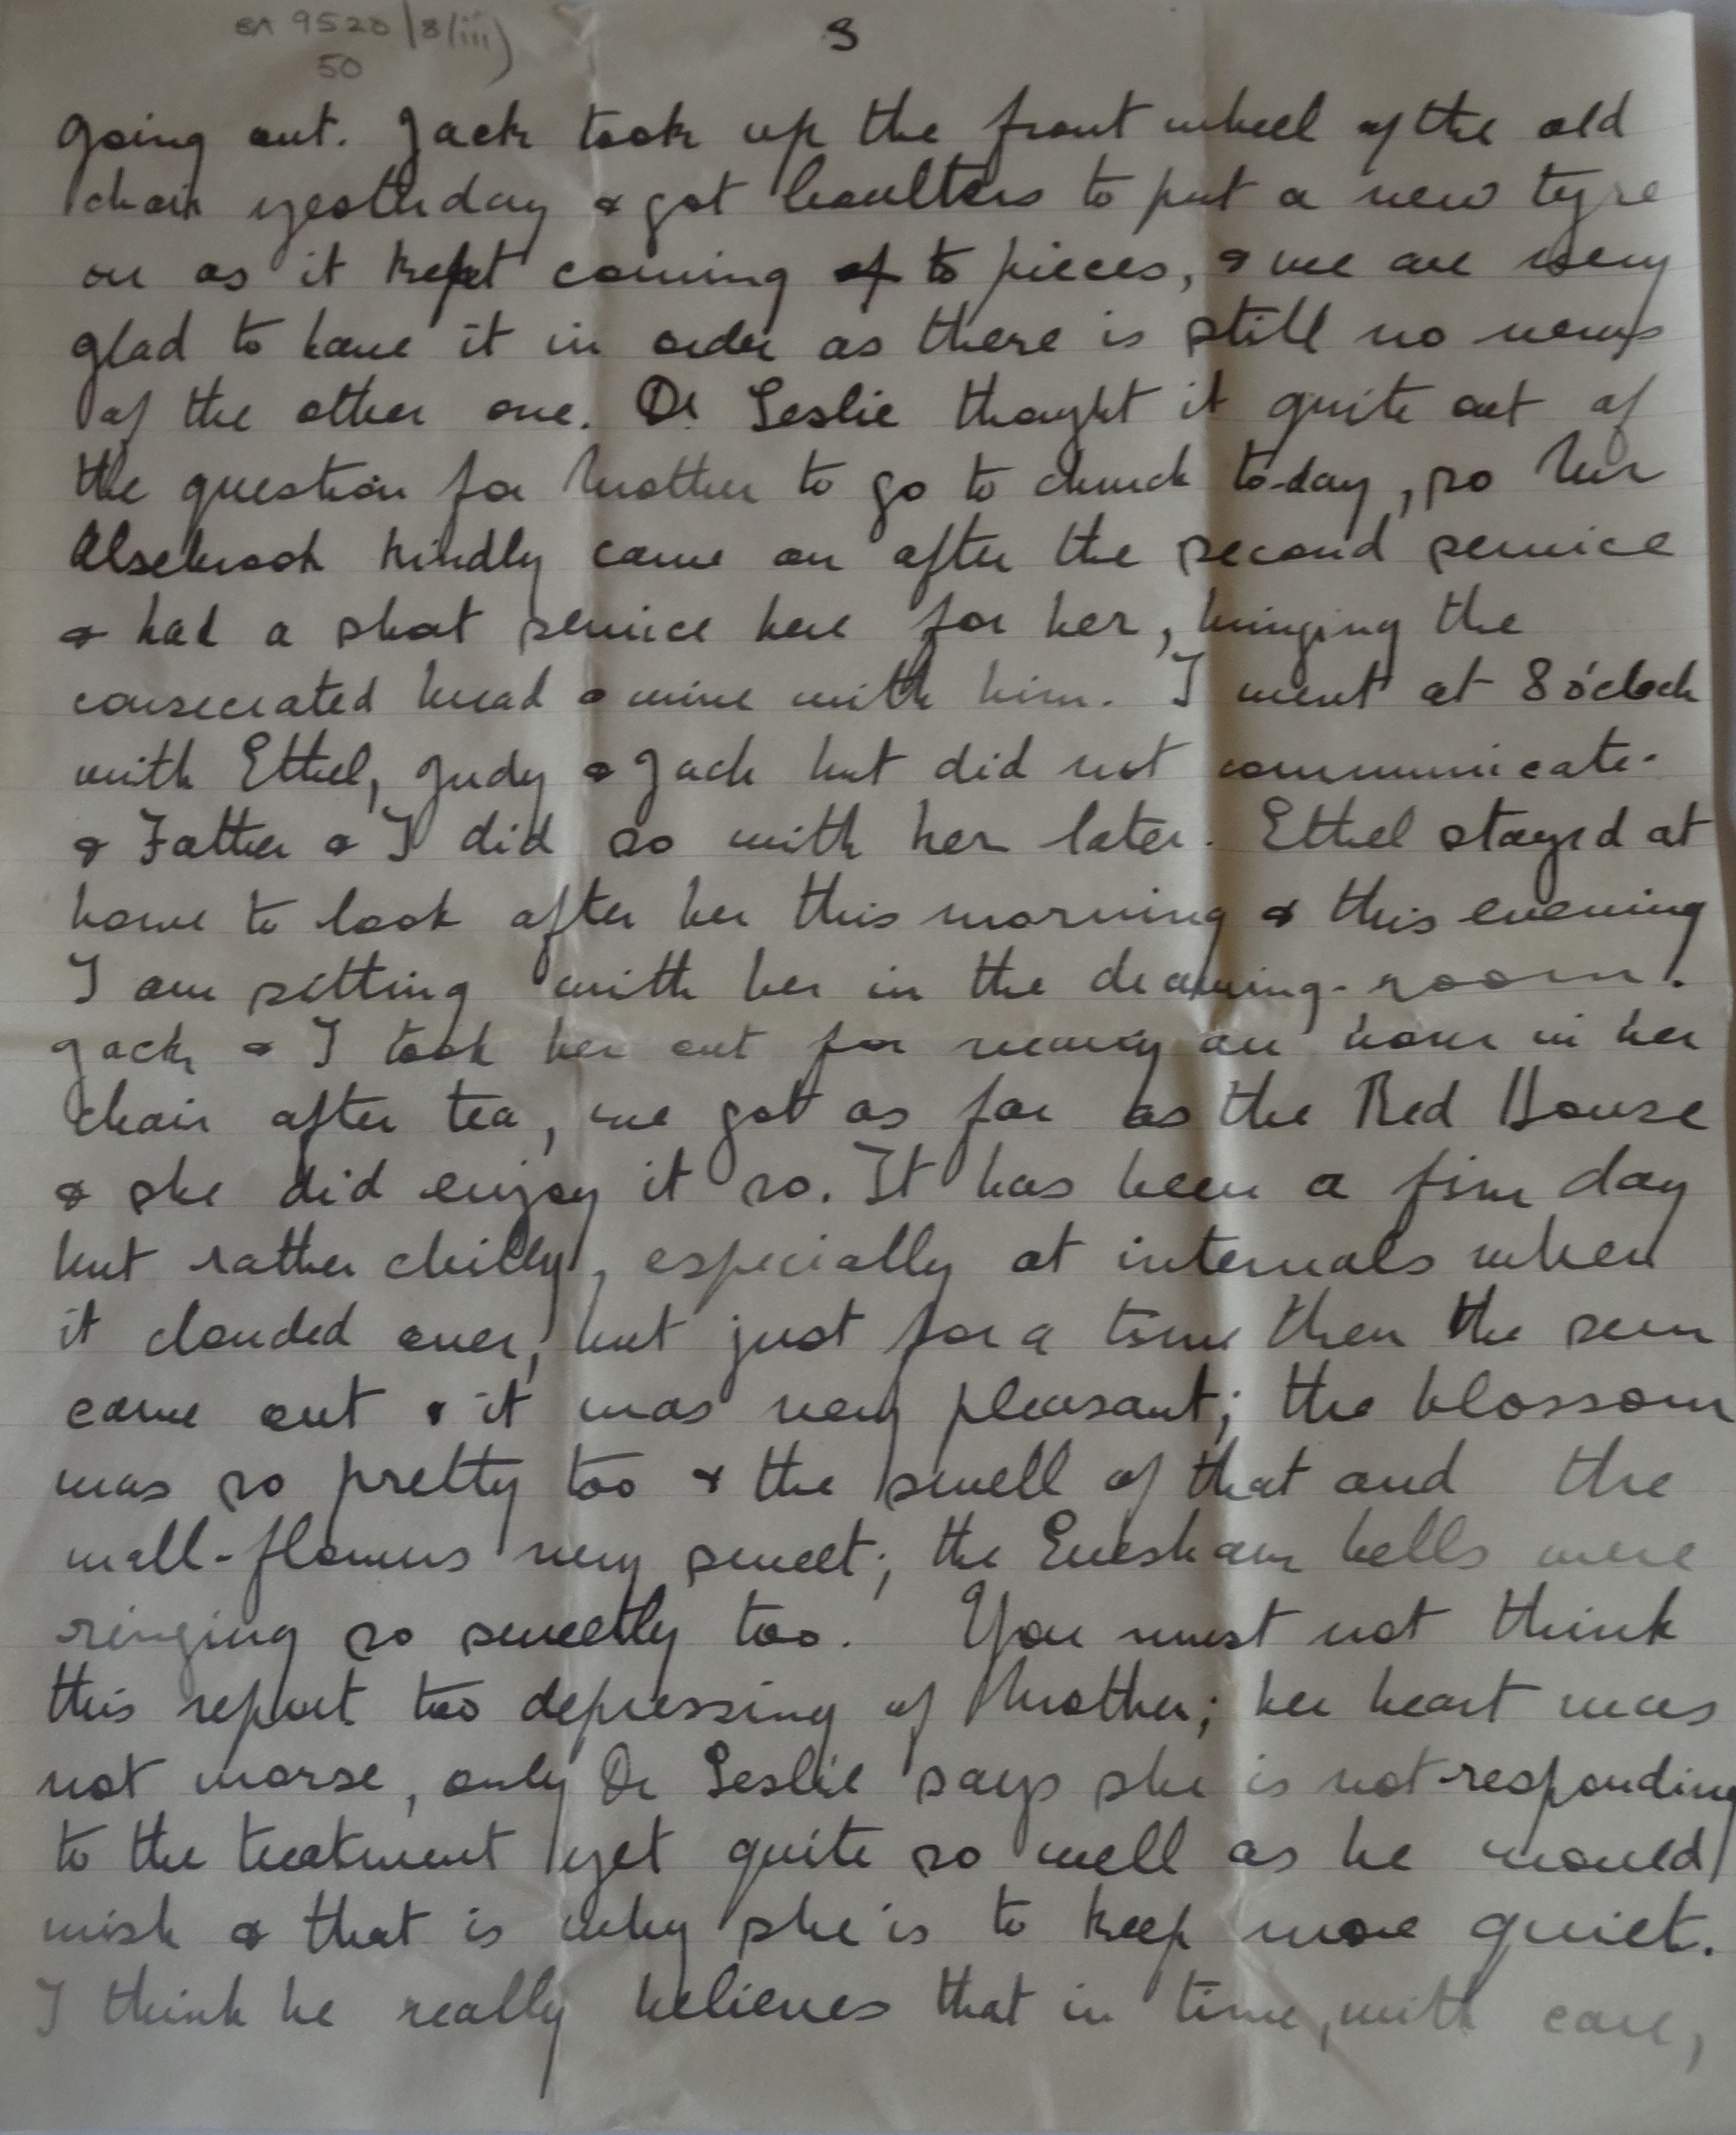 en 9520/8/iii)
50
3
going out. Jack took up the front wheel of the old
chair yesterday & got Coulters to put a new tyre
on as it kept coming of to pieces, & we are very
glad to have it in order as there is still no news
of the other one. Dr Leslie thought it quite out of
the question for Mother to go to church to-day, so Mr
Alsebrook kindly came on after the second service
& had a short service here for her, bringing the
consecrated bread & wine with him. I went at 8 o'clock
with Ethel, Judy & Jack but did not communicate.
& Father & I did so with her later. Ethel stayed at
home to look after her this morning & this evening
I am sitting with her in the drawing-room.
Jack & I took her out for nearly an hour in her
chair after tea, we got as far as the Red House
& she did enjoy it so. It has been a fine day
but rather chilly, especially at intervals when
it clouded over, but just for a time then the sun
came out & it was very pleasant; the blossom
was so pretty too & the smell of that and the
wall-flowers very sweet; the Evesham bells were
ringing so sweetly too. You must not think
this report too depressing of Mother; her heart was
not worse, only Dr Leslie says she is not responding
to the treatment yet quite so well as he would
wish & that is why she is to keep more quiet.
I think he really believes that in time, with care,